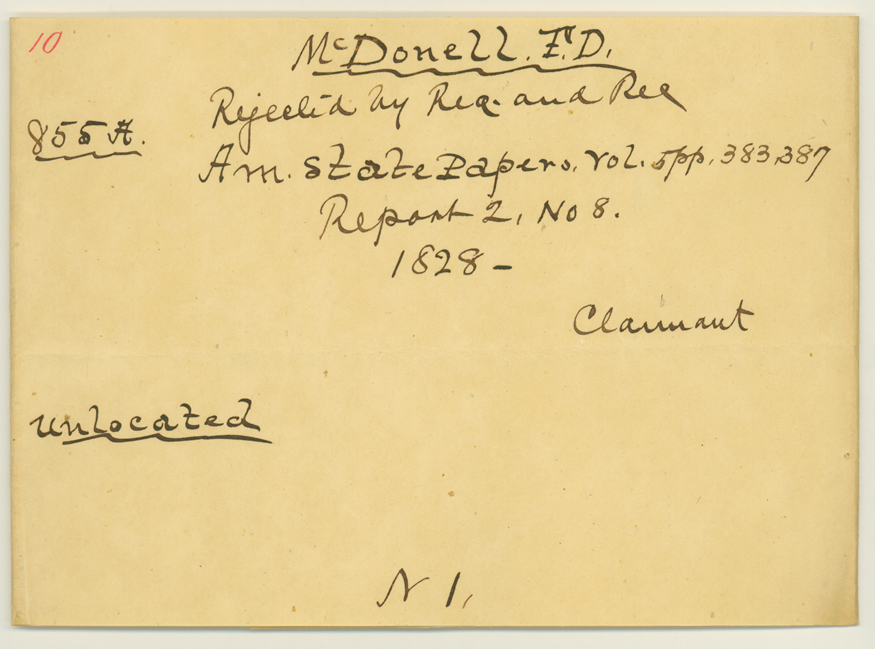 10
McDonell. F.D.
855 A.
Rejected by Reg. and Rec
Am. State Papers, Vol. 5 pp. 383, 387
Report 2, No 8.
1828 -
Claimant
Unlocated
N 1,